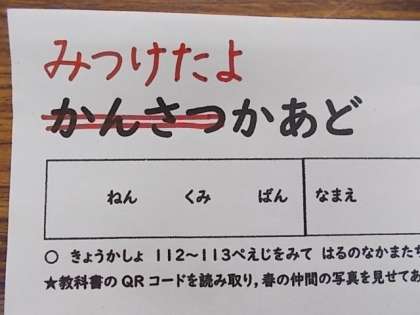 みつけたよ
かんさつかあど
ねん くみ ばん なまえ
○ きょうかしょ 112～113ぺえじをみて はるのなかまたち
★教科書のQRコードを読み取り，春の仲間の写真を見せてあ